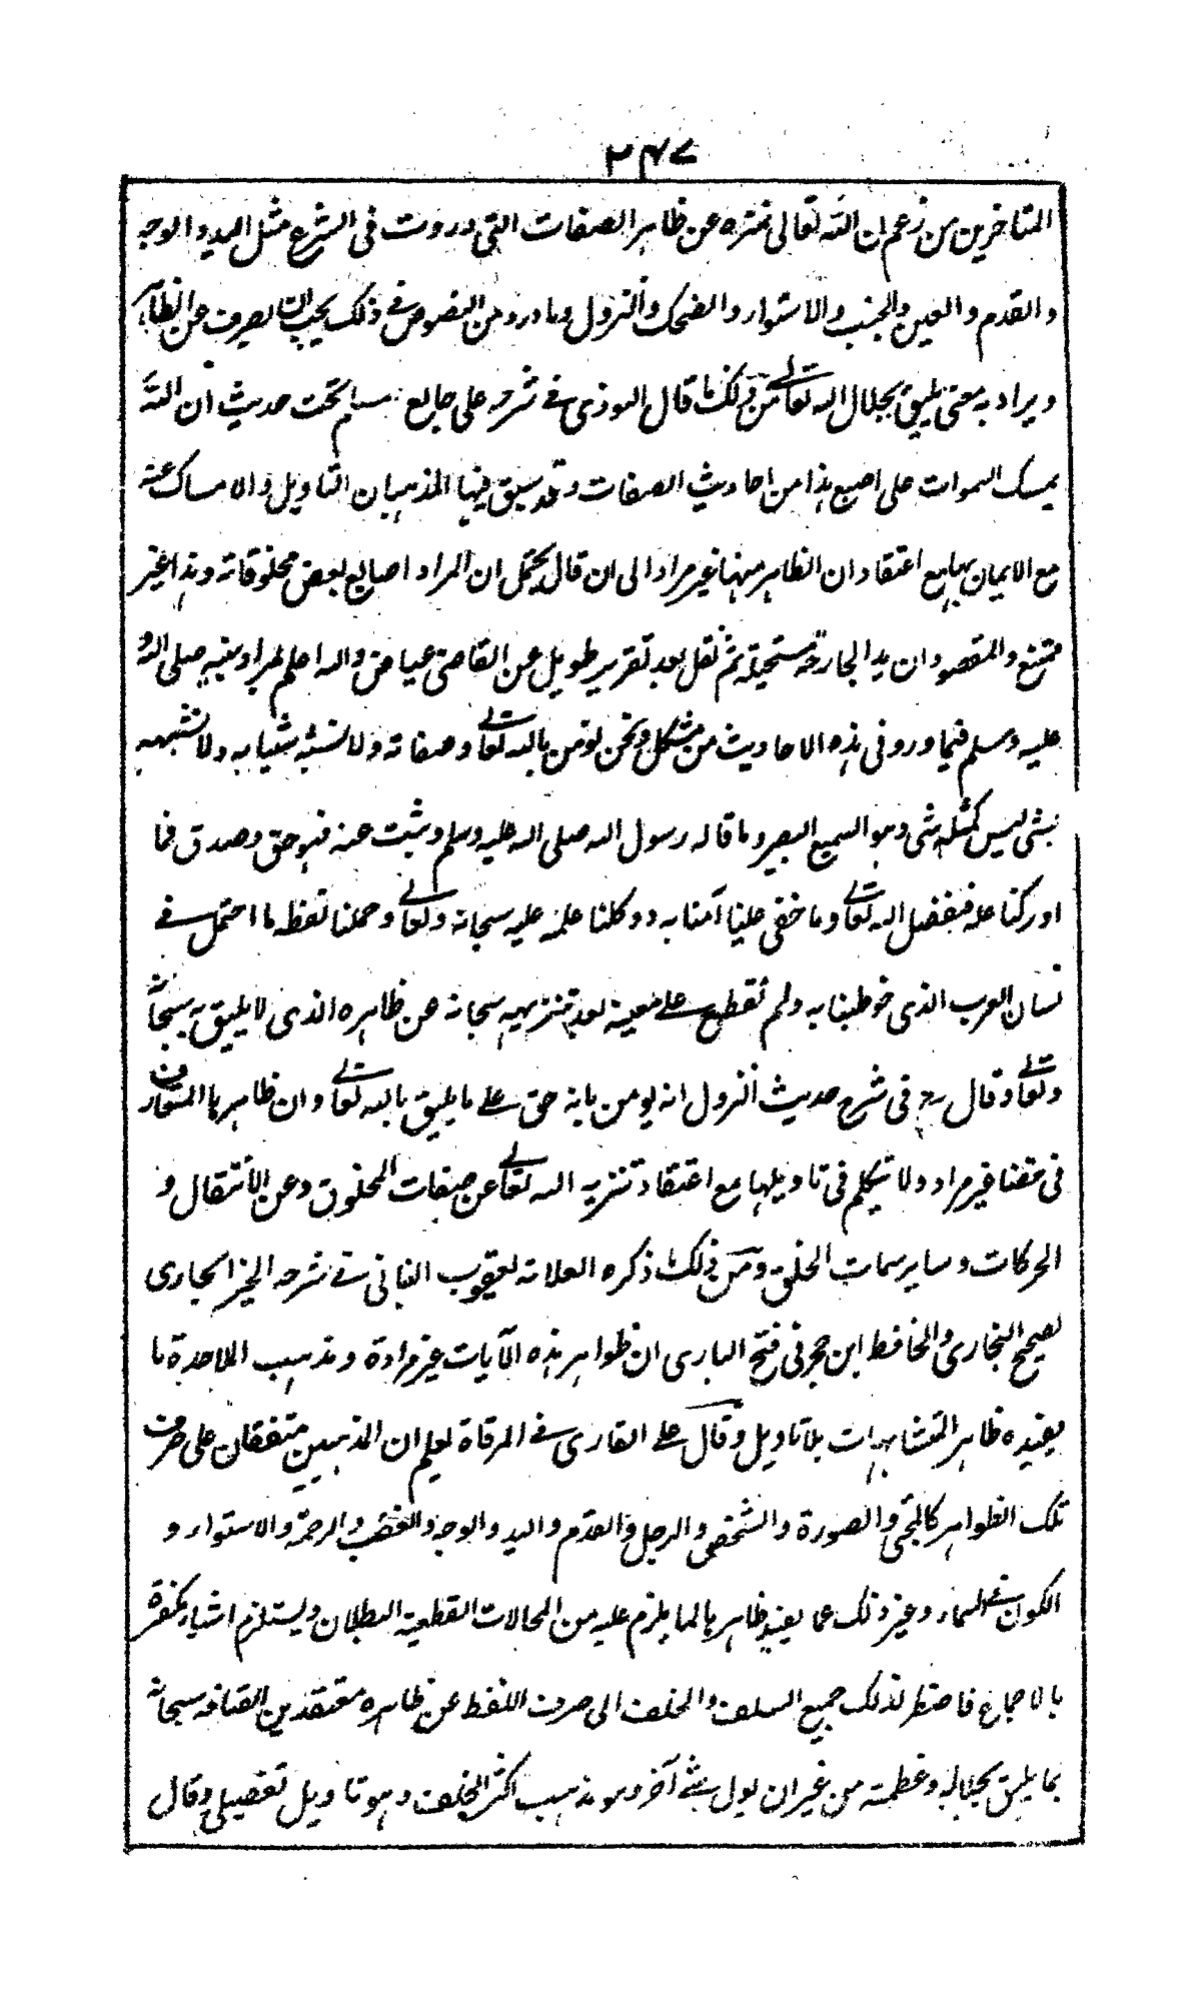 ٢٤٧
المتاخرين من زعم ان الله تعالى منزه عن ظاهر الصفات التى وردت فى الشرع مثل اليد والوجه
والقدم والعين والجنب والاستواء والضحك والنزول وما ورد من النصوص فى ذلك يجب ان يصرف عن الظاهر
ويراد به معنى يليق بجلال الله تعالى فمن ذلك ما قال النووى فى شرحه على جامع مسلم تحت حديث ان الله
يمسك السموات على اصبع هذا من احاديث الصفات وقد سبق فيها المذهبان التاويل والامساك عنه
مع الايمان بها مع اعتقاد ان الظاهر منها غير مراد الى ان قال يحتمل ان المراد اصابع بعض مخلوقاته وهذا غير
ممتنع والمقصود ان يد الجارحة مستحيلة ثم نقل بعد تقرير طويل عن القاضى عياض والله اعلم بمراد نبيه صلى الله
عليه وسلم فيما ورد فى هذه الاحاديث من مشكل ونحن نومن بالله تعالى وصفاته ولا نشبه شيئا به ولا نشبهه
بشى ليس كمثله شى وهو السميع البصير وما قاله رسول الله صلى الله عليه وسلم وثبت عنه فهو حق وصدق فما
ادركنا علمه فبفضل الله تعالى وما خفى علينا آمنا به ووكلنا علمه عليه سبحانه وتعالى وحملنا لفظه ما احتمل فى
لسان العرب الذى خوطبنا به ولم نقطع على معينه بعد تنزيهه سبحانه عن ظاهره الذى لا يليق به سبحانه
وتعالى وقال رح فى شرح حديث النزول انه يومن بانه حق على ما يليق بالله تعالى وان ظاهرها المتعارف
فى حقنا غير مراد ولا نتكلم فى تاويلها مع اعتقاد تنزيه الله تعالى عن صفات المخلوق وعن الانتقال و
الحركات وساير سمات الخلق ومن ذلك ذكره العلامة يعقوب البنانى فى شرحه الخير الجارى
لصحيح البخارى والحافظ ابن حجر فى فتح البارى ان ظواهر هذه الآيات غير مرادة ومذهب الملاحدة ما
يفيده ظاهر المتشابهات بلا تاويل وقال على القارى فى المرقاة يعلم ان المذهبين متفقان على صرف
تلك الظواهر كالمجى والصورة والشخص والرجل والقدم واليد والوجه والغضب والرحمة والاستواء و
الكون فى السماء وغير ذلك عما يفيده ظاهرها لما يلزم عليه من المحالات القطعية البطلان ويستلزم اشياء بكفره
بالاجماع فاضطر لذلك جميع السلف والخلف الى صرف اللفظ عن ظاهره معتقدين اتصافه سبحانه
بما يليق بجلاله وعظمته من غير ان يول بشئ آخر وهو مذهب اكثر الخلف وهو تاويل تفصيلى وقال